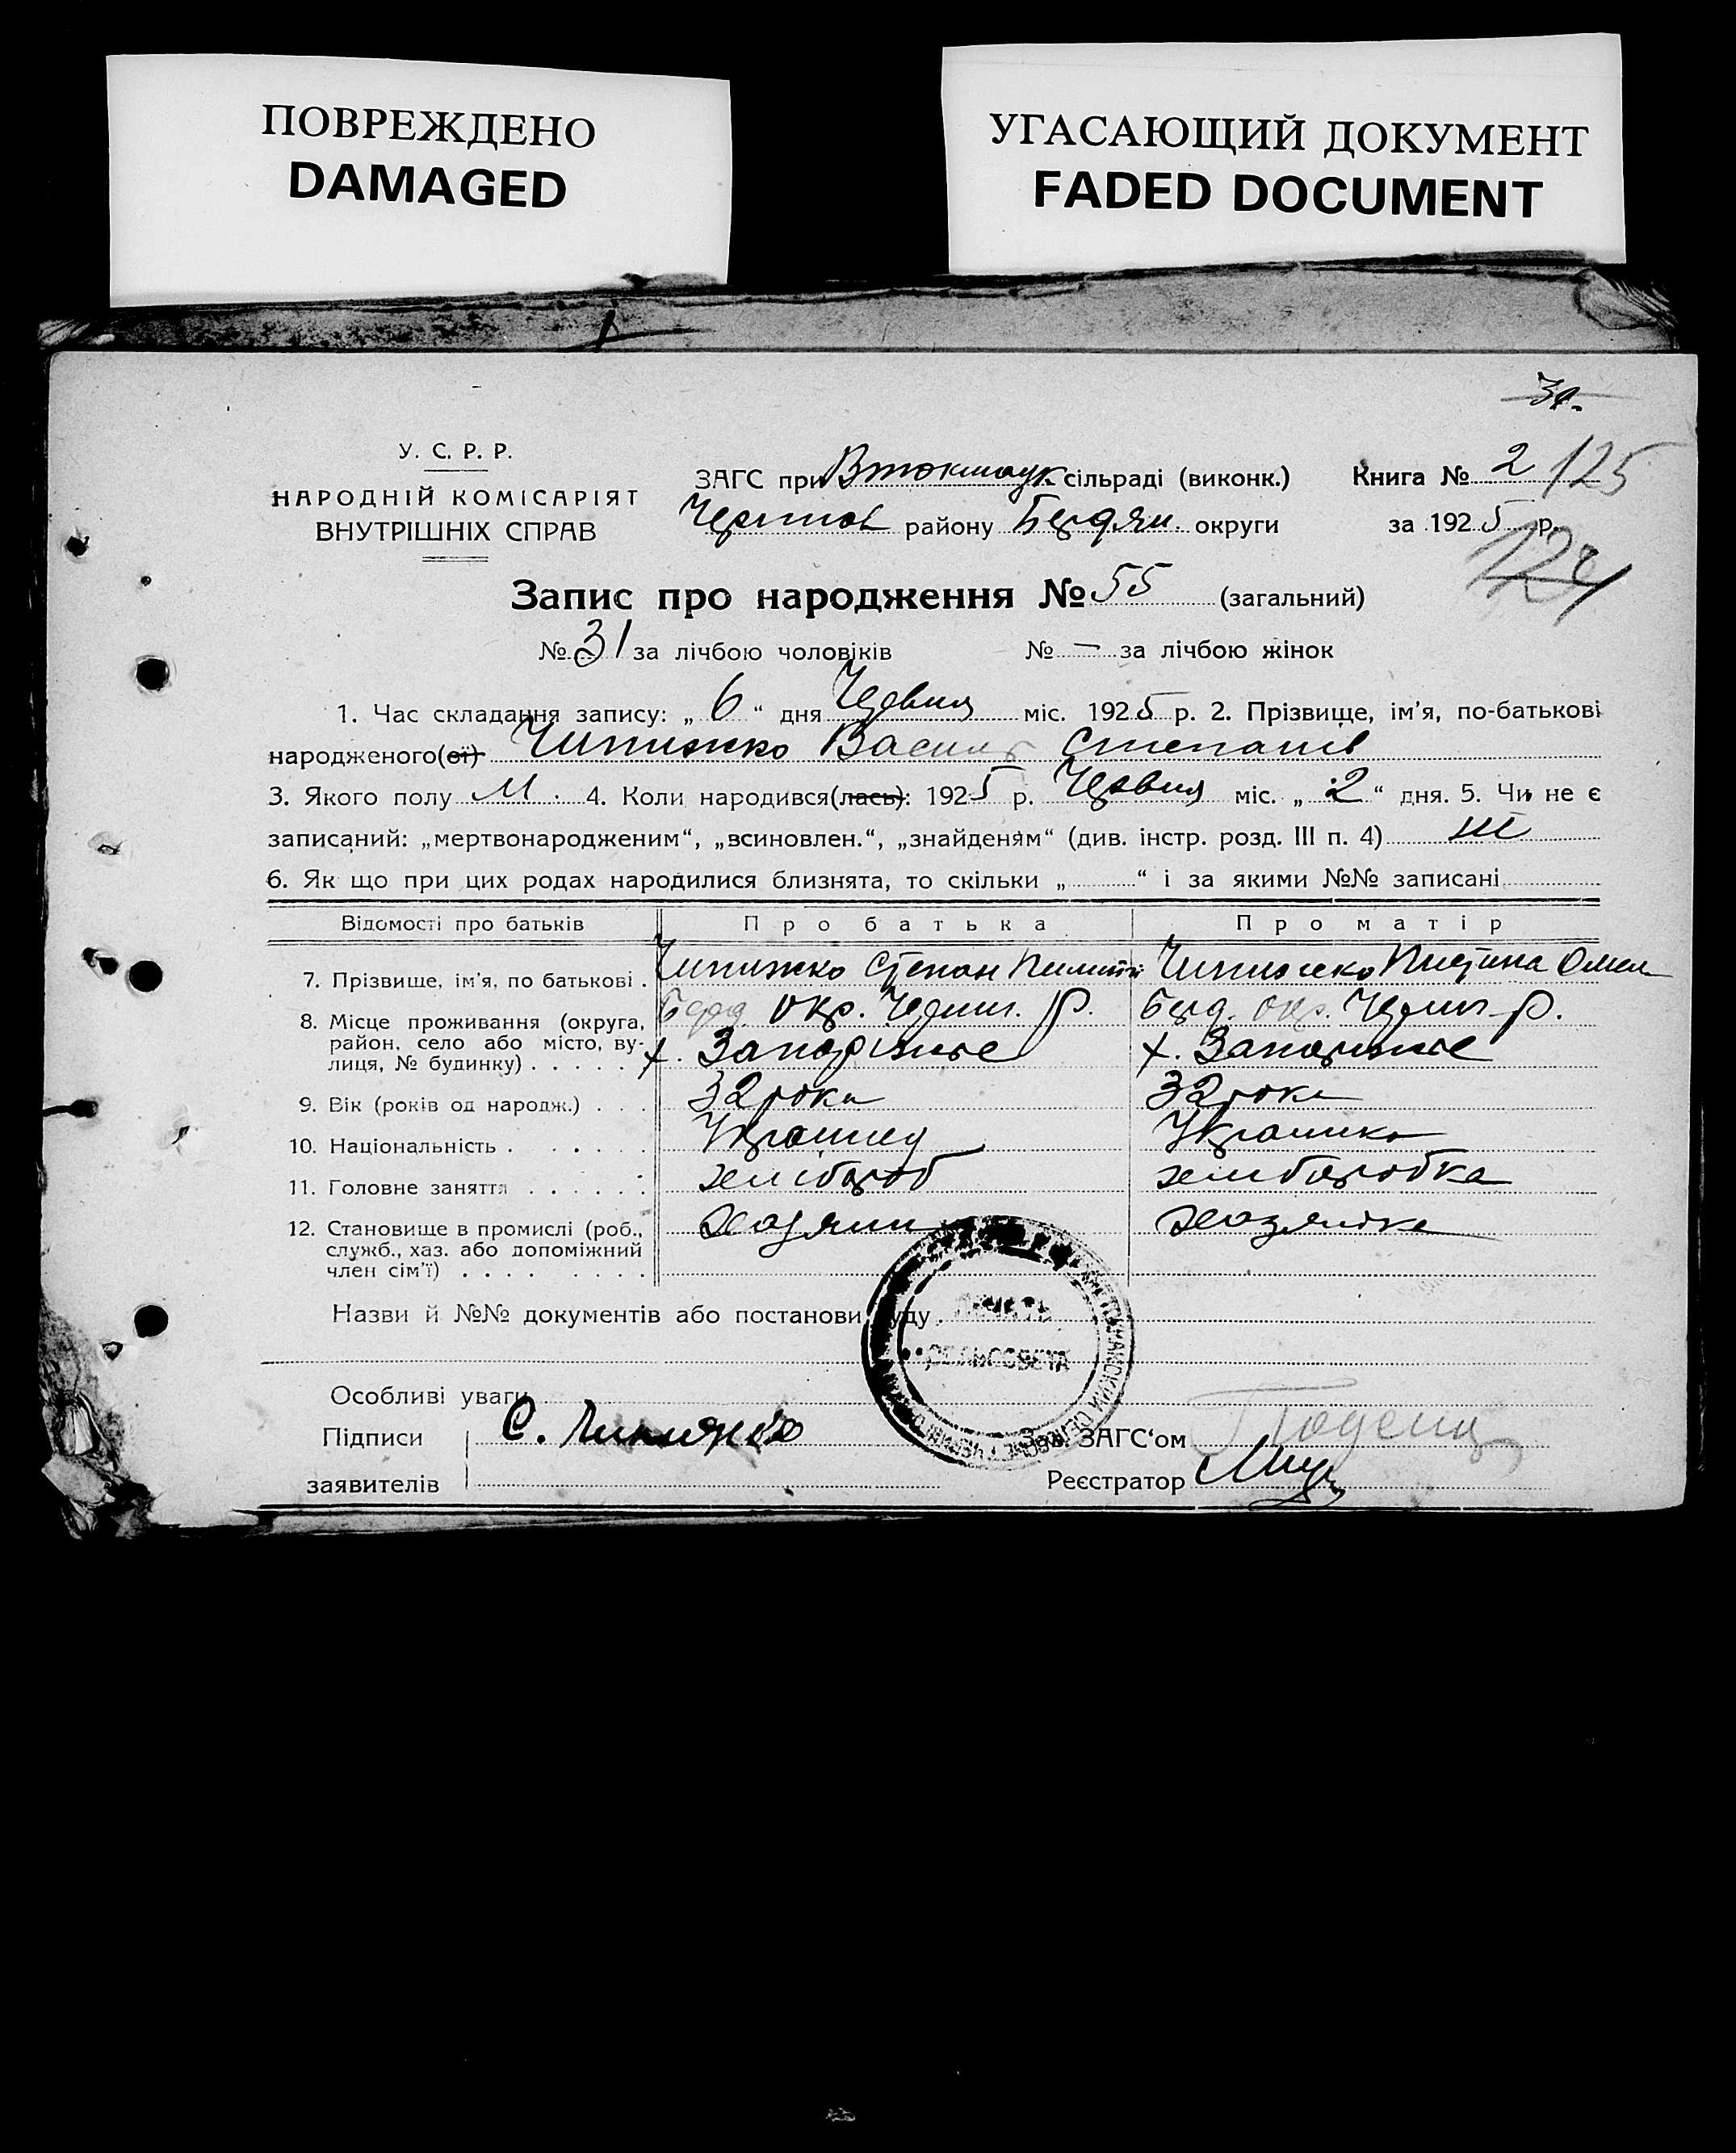 ПОВРЕЖДЕНО
DAMAGED
УГАСАЮЩИЙ ДОКУМЕНТ
FADED DOCUMENT
У. С. Р. Р.
НАРОДНІЙ КОМІСАРІЯТ
ВНУТРІШНІХ СПРАВ
ЗАГС при Втокмацк сільраді (виконк.)
району Бердян. округи
Книга № 2 125
за 1925 р.
124
Запис про народження № 55 (загальний)
№ 31 за лічбою чоловіків № — за лічбою жінок
1. Час складання запису: „ 6 “ дня Червня міс. 1925 р. 2. Прізвище, ім'я, по-батькові
народженого(ої) Чипижко Василь Степанів
3. Якого полу М. 4. Коли народився(лась): 1925 р. Червня міс. „ 2 “ дня. 5. Чи не є
записаний: „мертвонародженим“, „всиновлен.“, „знайденям“ (див. інстр. розд. III п. 4)
6. Як що при цих родах народилися близнята, то скільки „ “ і за якими №№ записані
Відомості про батьків Про батька Про матір
7. Прізвище, ім'я, по батькові . Чипижко Степан Чипижко Омел
8. Місце проживання (округа, Берд. окр. Черниг. р. Берд. окр. Черниг. р.
район, село або місто, ву- х. Запоріжье х. Запоріжье
лиця, № будинку) . . . . .
9. Вік (років од народж.) . . . 32 роки 32 роки
10. Національність . . . . . Українец Українка
11. Головне заняття . . . . . . хлібороб хліборобка
12. Становище в промислі (роб., хазяин хазяйка
служб., хаз. або допоміжний
член сім'ї) . . . . . . . .
Назви й №№ документів або постанови суду .
Особливі уваги
Підписи
заявителів
С. Чипижко
Зав. ЗАГС‘ом
Реєстратор